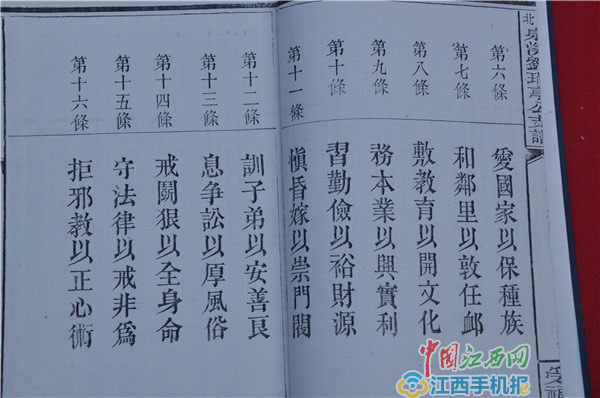 北泉漢劉琫亭公支譜
第六條 愛國家以保種族
第七條 和鄰里以敦任卹
第八條 敷教育以開文化
第九條 務本業以興實利
第十條 習勤儉以裕財源
第十一條 愼昏嫁以崇門閥
第十二條 訓子弟以安善良
第十三條 息爭訟以厚風俗
第十四條 戒鬭狠以全身命
第十五條 守法律以戒非為
第十六條 拒邪教以正心術
中国江西网
江西手机报